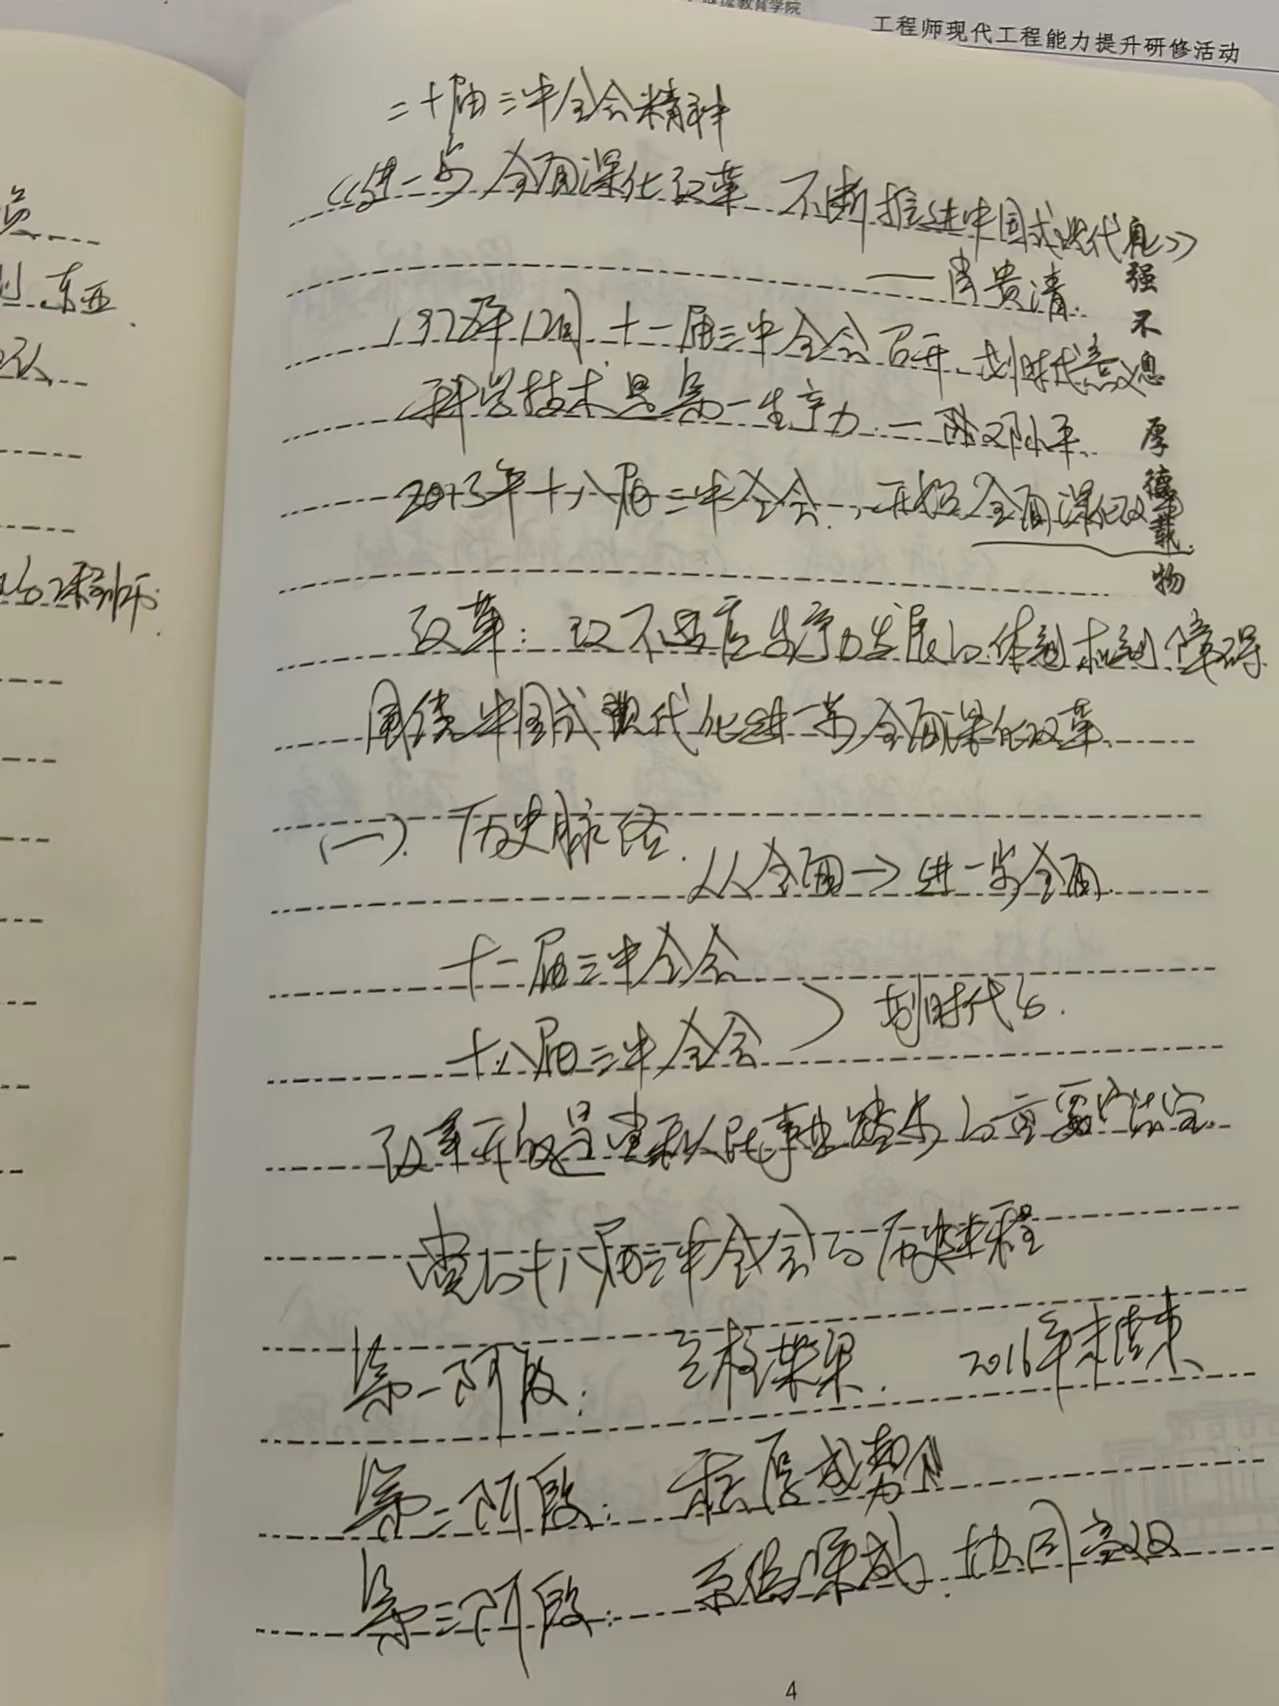 继续教育学院
工程师现代工程能力提升研修活动
二十届三中全会精神
《进一步全面深化改革 不断推进中国式现代化》
——肖贵清
1978年12月 十一届三中全会召开 划时代意义
科学技术是第一生产力 — 邓小平
2013年十八届三中全会, 开始全面深化改革
改革: 改不适应生产力发展的体制机制障碍
围绕中国式现代化进一步全面深化改革
(一). 历史脉络.
从全面→进一步全面
十一届三中全会
十八届三中全会
划时代的.
改革开放是党和人民事业赶上的重要法宝.
党的十八届三中全会的历史进程
第一阶段: 立柱架梁. 2016年末结束
第二阶段: 积厚成势
第三阶段: 系统集成, 协同高效
自强不息 厚德载物
东亚
4